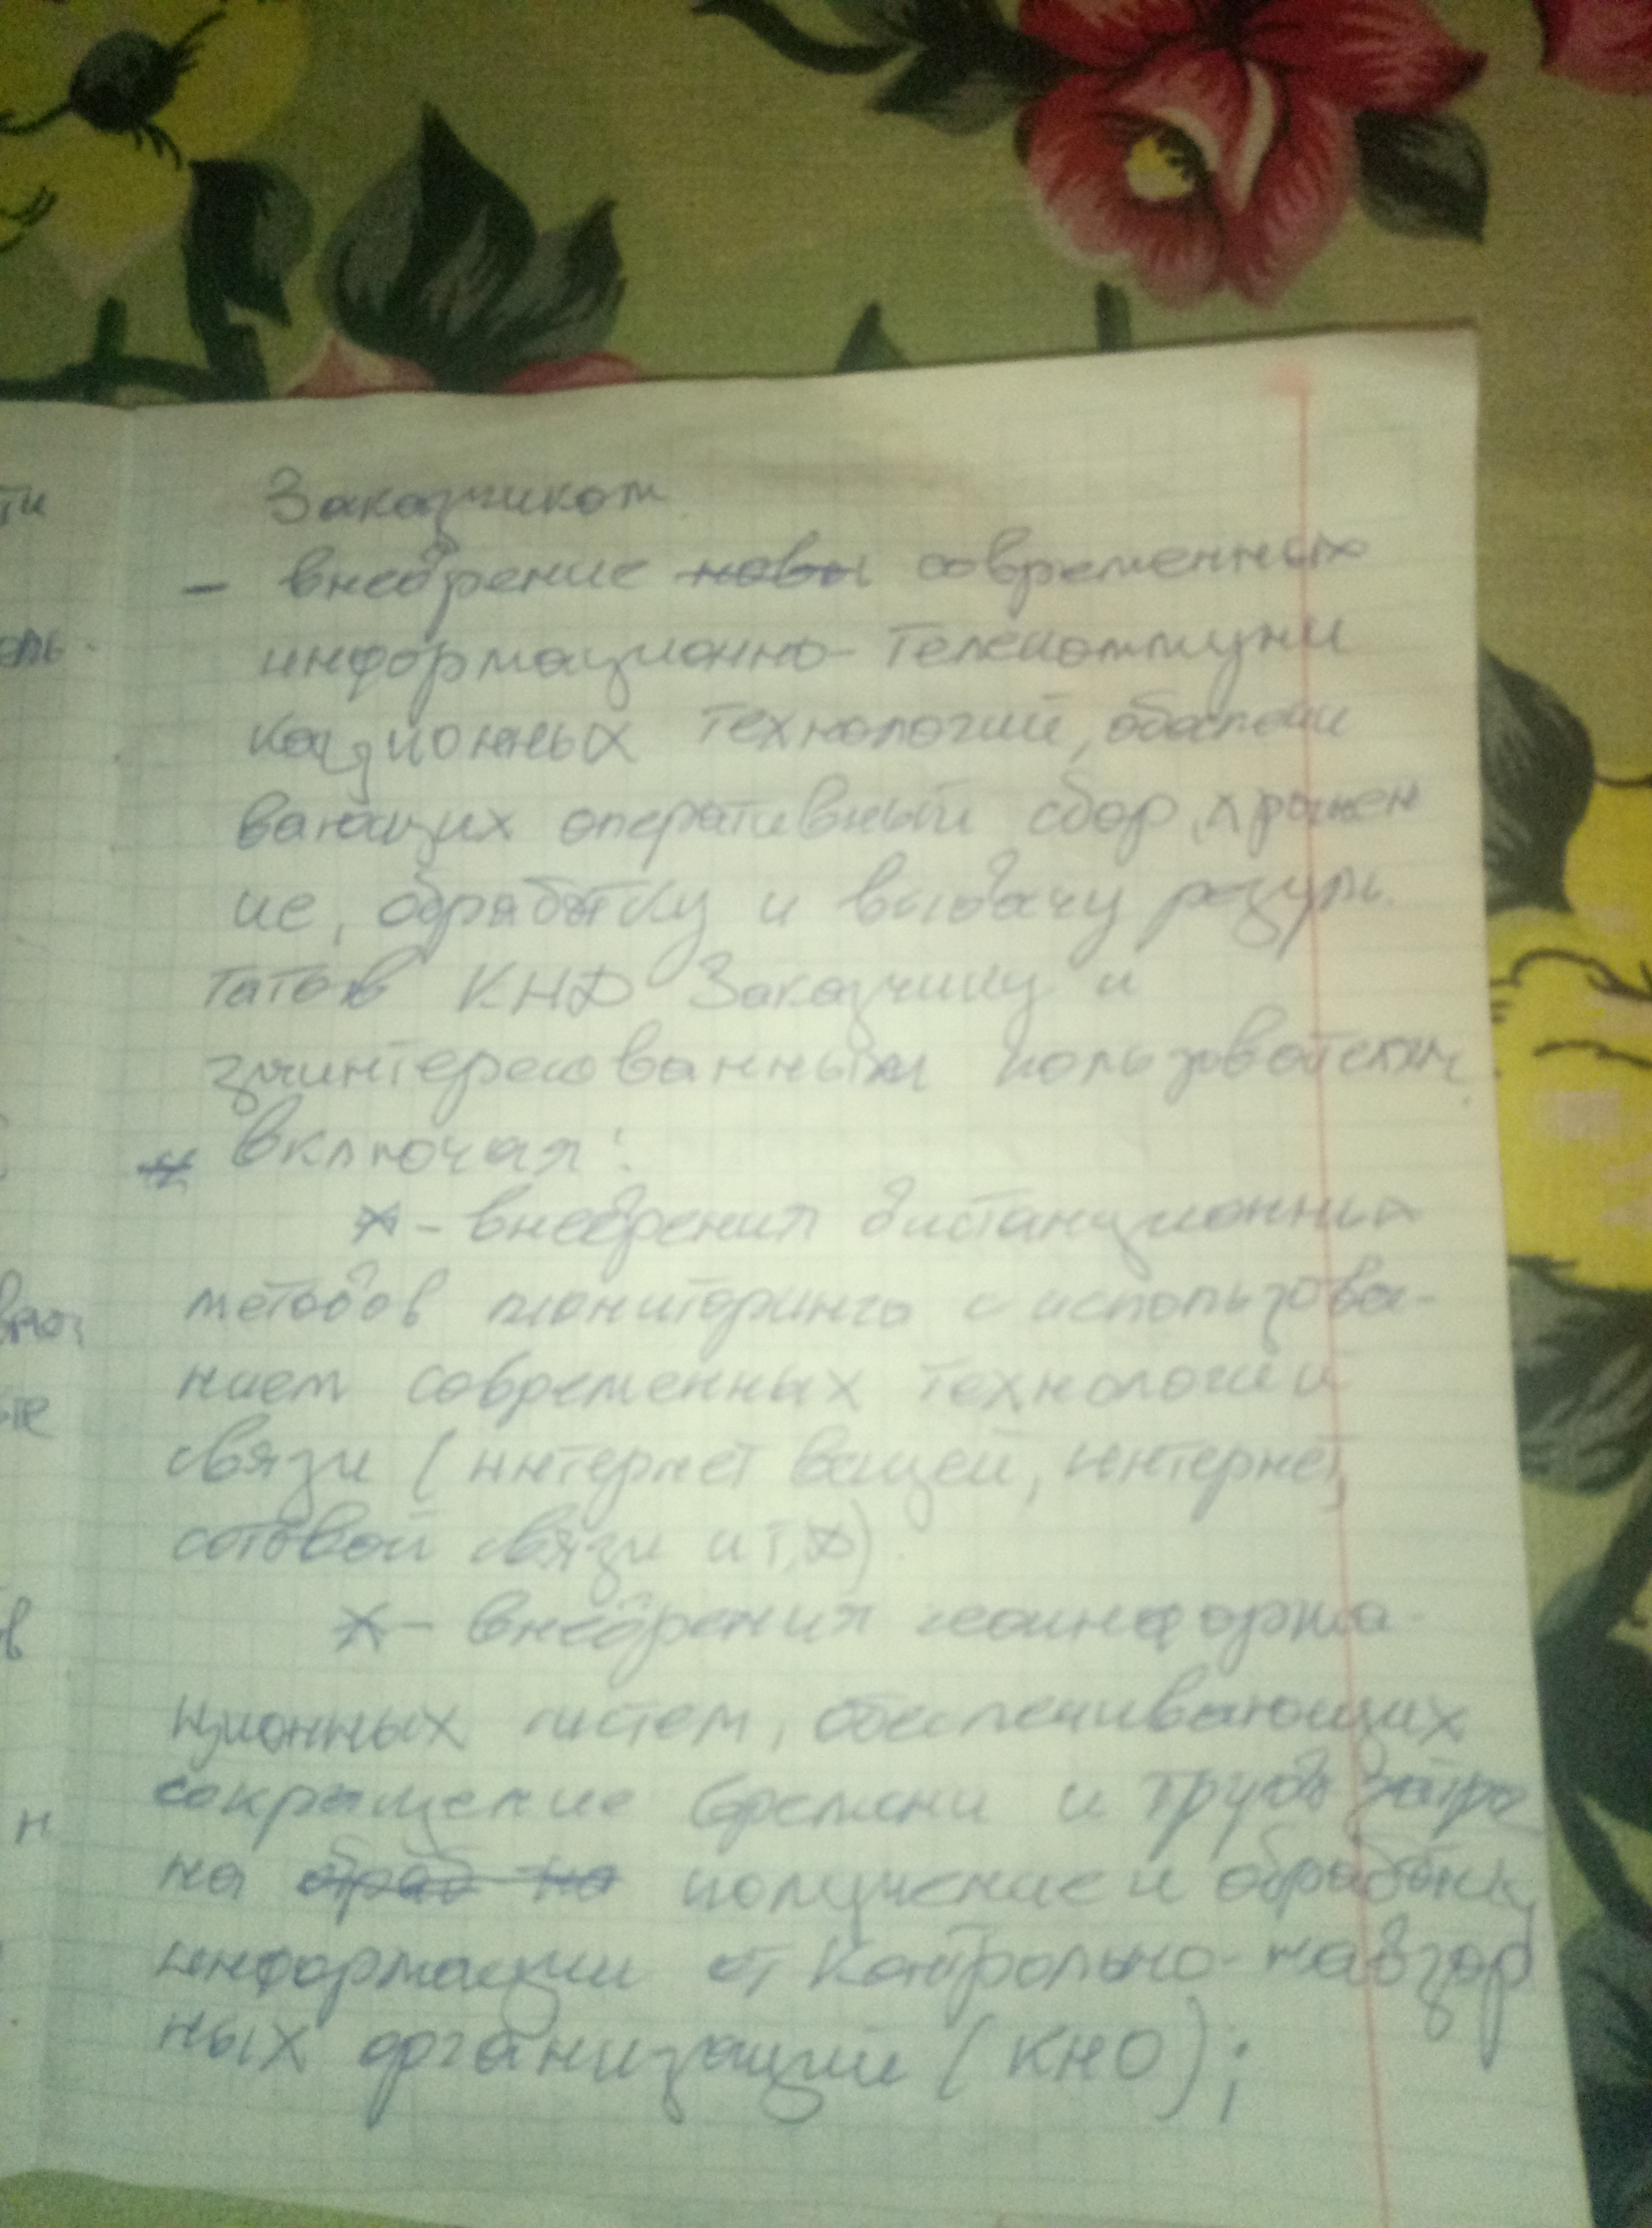 Заказчиком
- внедрение новы современных
информационно-телекоммуни
кационных технологий, обеспечи
вающих оперативный сбор, хранен
ие, обработку и выдачу резуль
татов КНД Заказчику и
заинтересованным пользователям
включая:
- внедрения дистанционных
методов мониторинга с использова-
нием современных технологии
связи (интернет вещей, интернет,
сотовой связи и т.д)
- внедрения геоинформа-
ционных систем, обеспечивающих
сокращение времени и трудозатра
на обраб на получение и обработку
информации от Контрольно-надзор
ных организации (КНО);
ти
ель
те
в
н